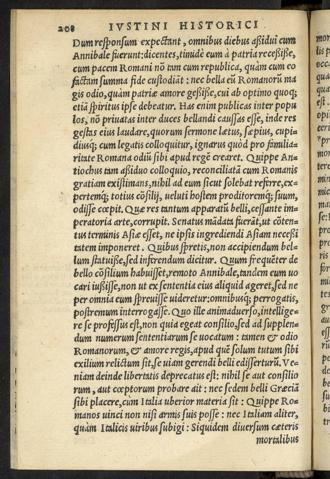 208 IVSTINI HISTORICI
Dum responsum expectant, omnibus diebus aßidui cum
Annibale fuerunt: dicentes, timidè eum à patria receßiße,
cum pacem Romani nõ tam cum republica, quàm cum eo
factam summa fide custodiãt: nec bella eũ Romanorũ ma
gis odio, quàm patriæ amore geßiße, cui ab optimo quoq;
etiã spiritus ipse debeatur. Has enim publicas inter popu
los, nõ priuatas inter duces bellandi caussas esse, inde res
gestas eius laudare, quorum sermone lætus, sæpius, cupi-
diusq; cum legatis colloquitur, ignarus quòd pro familia-
ritate Romana odiũ sibi apud regẽ crearet. Quippe An-
tiochus tam aßiduo colloquio, reconciliatã cum Romanis
gratiam existimans, nihil ad eum sicut solebat referre, ex-
pertemq́; totius cõsilij, ueluti hostem proditoremq́; suum,
odisse cœpit. Quæ res tantum apparatũ belli, cessante im
peratoria arte, corrupit. Senatus mãdata fuerãt, ut cõten-
tus terminis Asiæ esset, ne ipsis ingrediendi Asiam necessi
tatem imponeret. Quibus spretis, non accipiendum bel-
lum statuiße, sed inferendum dicitur. Quum frequẽter de
bello cõsilium habuisset, remoto Annibale, tandem eum uo
cari iußisse, non ut ex sententia eius aliquid ageret, sed ne
per omnia eum spreuisse uideretur: omnibusq; perrogatis,
postremum interrogasse. Quo ille animaduerso, intellige-
re se professus est, non quia egeat consilio, sed ad supplen-
dum numerum sententiarum se uocatum: tamen & odio
Romanorum, & amore regis, apud quẽ solum tutum sibi
exilium relictum sit, se uiam gerendi belli disserturũ. Ve-
niam deinde libertatis deprecatus est: nihil se aut consilio
rum, aut cœptorum probare ait: nec sedem belli Græciã
sibi placere, cũm Italia uberior materia sit: Quippe Ro-
manos uinci non nisi armis suis posse: nec Italiam aliter,
quàm Italicis uiribus subigi: Siquidem diuersum cæteris
mortalibus